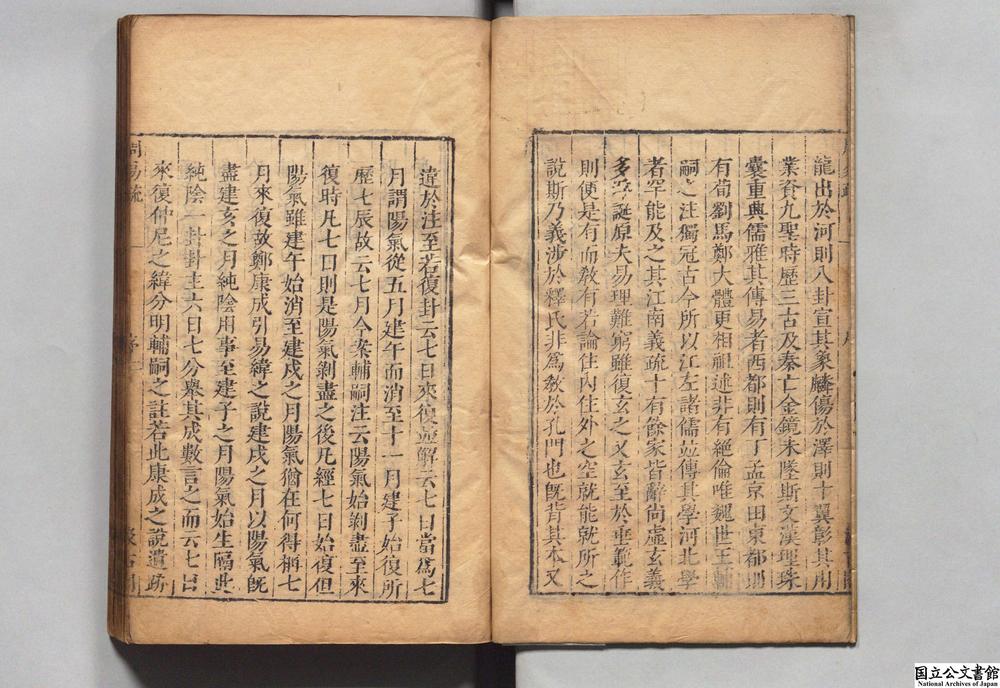 龍出於河則八卦宣其象麟傷於澤則十翼彰其用
業資九聖時歷三古及秦亡金鏡未墜斯文漢理珠
囊重興儒雅其傳易者西都則有丁孟京田東都則
有荀劉馬鄭大體更相祖述非有絕倫唯魏世王輔
嗣之注獨冠古今所以江左諸儒並傳其學河北學
者罕能及之其江南義疏十有餘家皆辭尚虛玄義
多浮誕原夫易理難窮雖復玄之又玄至於垂範作
則便是有而敎有若論住內住外之空就能就所之
說斯乃義涉於釋氏非爲敎於孔門也旣背其本又
違於注至若復卦云七日來復並解云七日當爲七
月謂陽氣從五月建午而消至十一月建子始復所
歷七辰故云七月今案輔嗣注云陽氣始剝盡至來
復時凡七日則是陽氣剝盡之後凡經七日始復但
陽氣雖建午始消至建戌之月陽氣猶在何得稱七
月來復故鄭康成引易緯之說建戌之月以陽氣旣
盡建亥之月純陰用事至建子之月陽氣始生隔此
純陰一卦卦主六日七分舉其成數言之而云七日
來復仲尼之緯分明輔嗣之註若此康成之說遺跡
周易疏
国立公文書館
National Archives of Japan